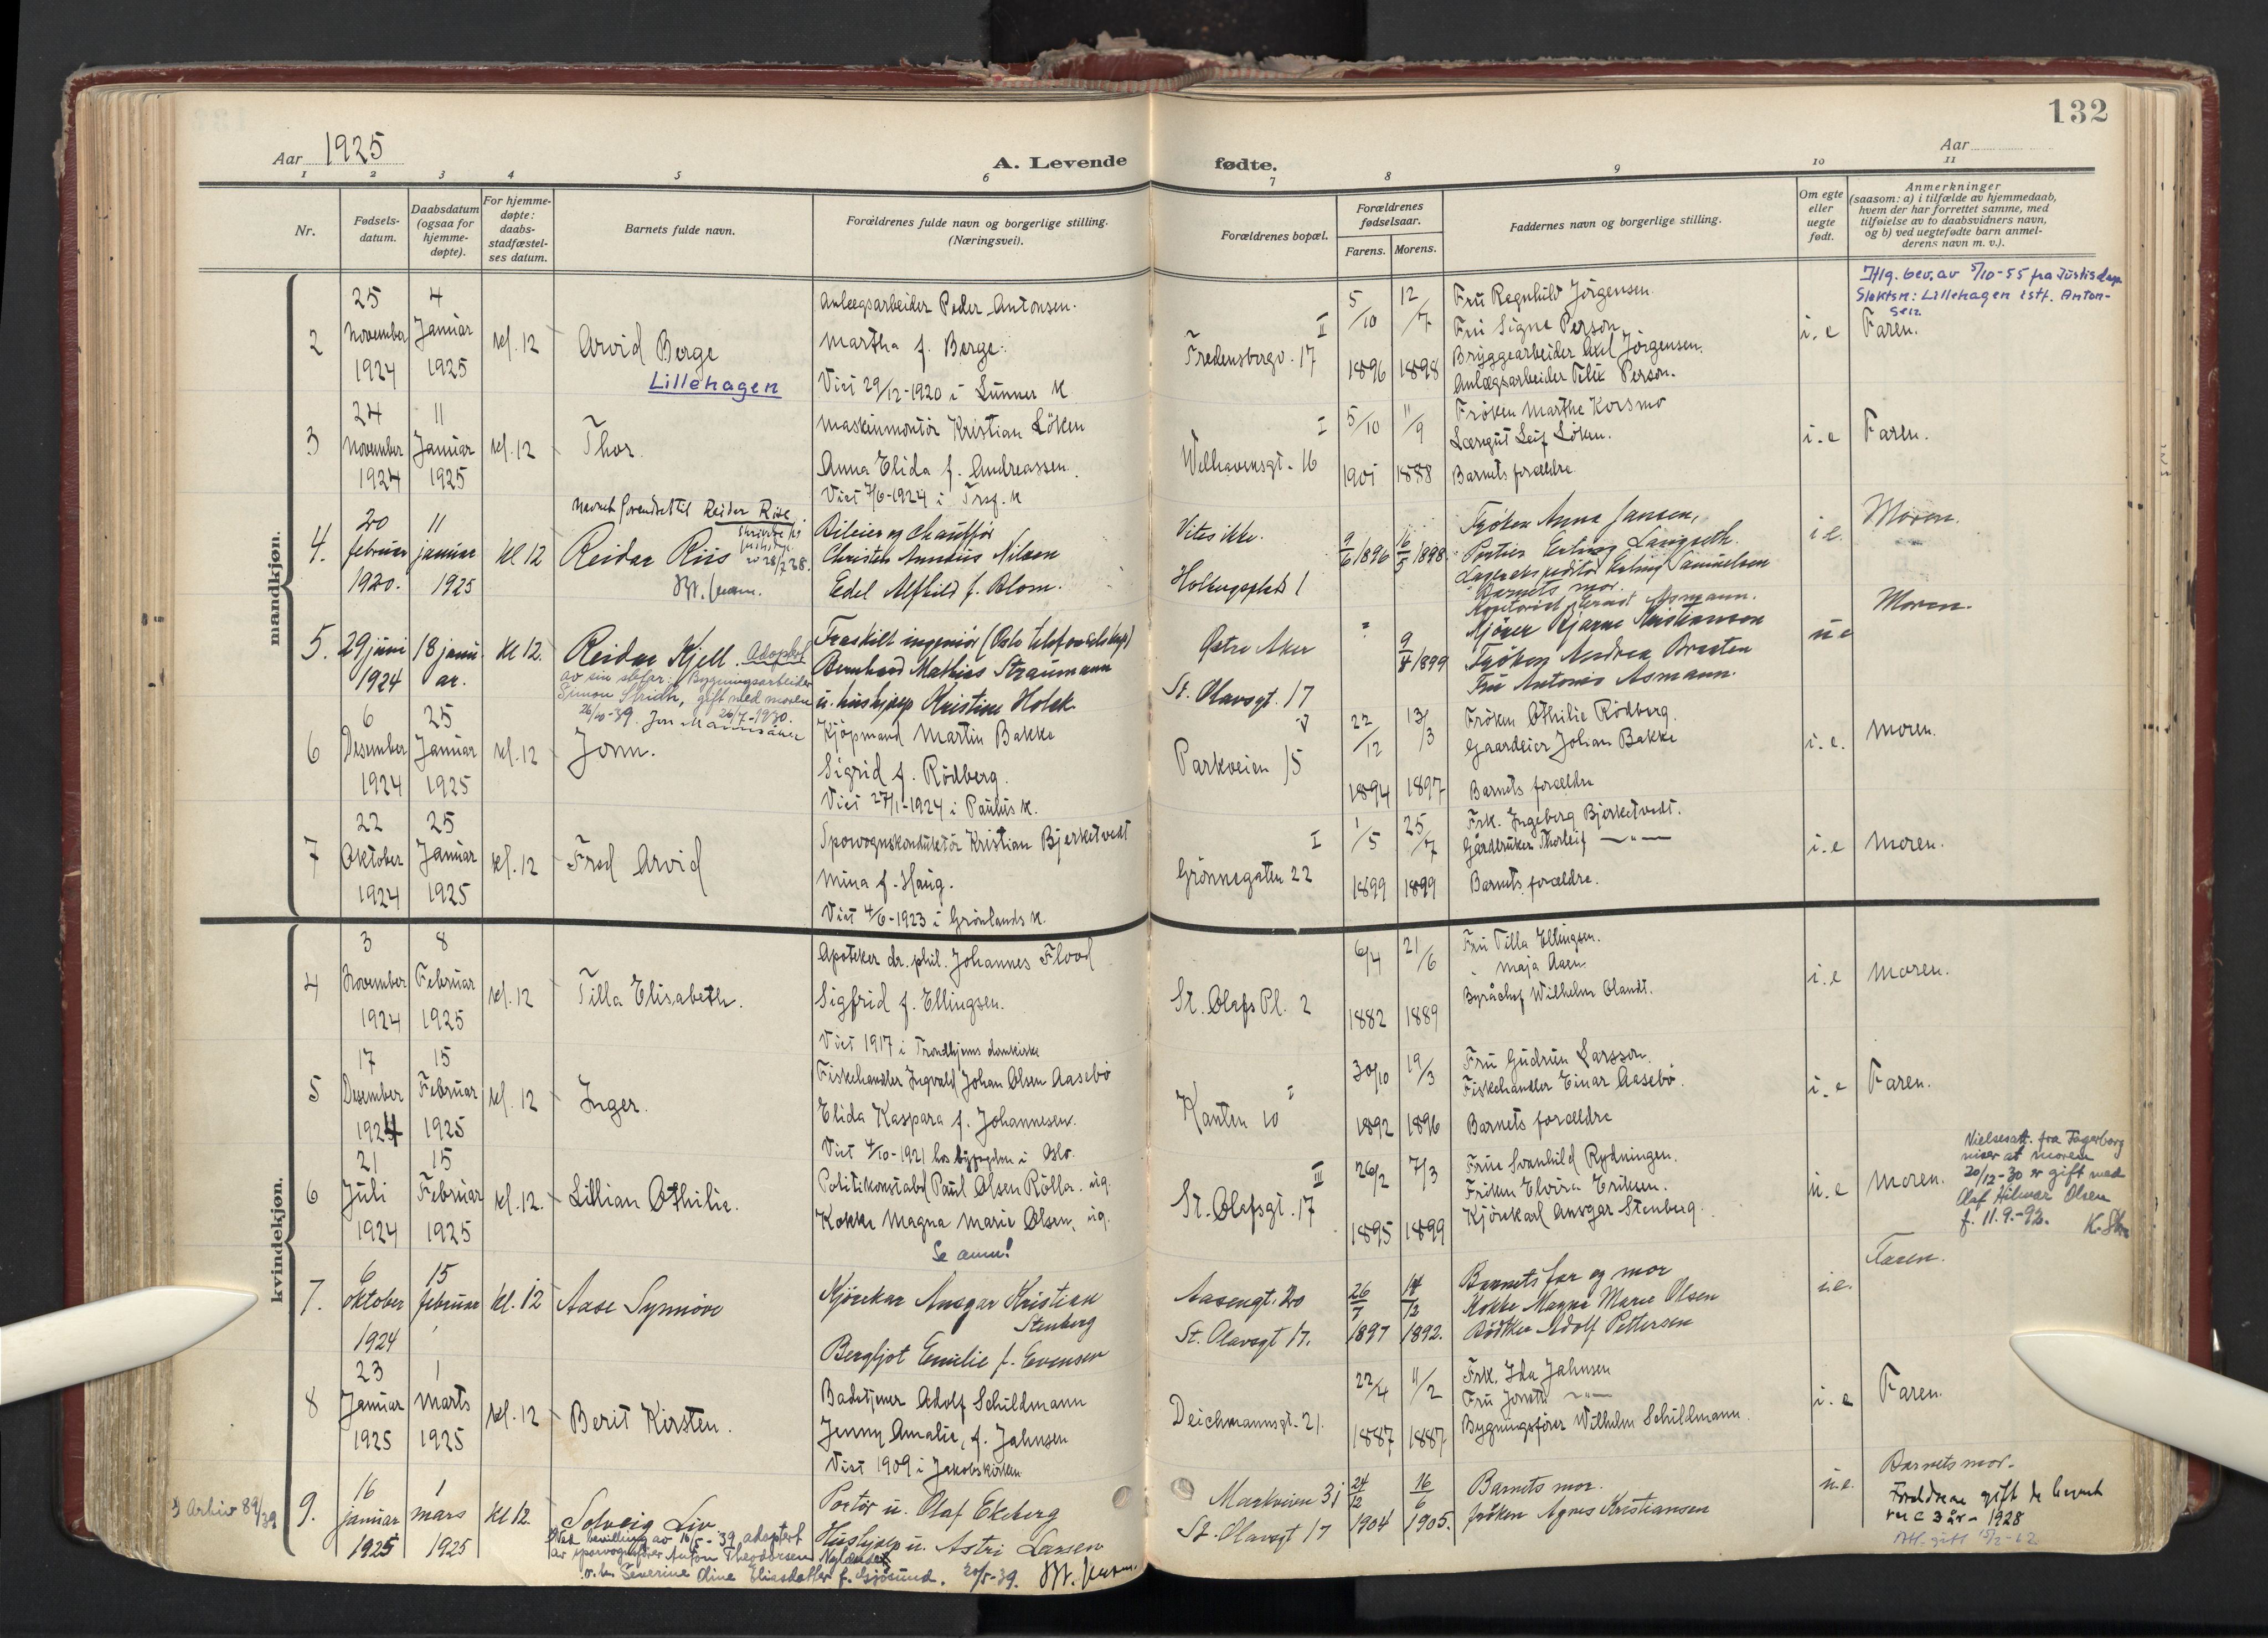 132
Aar 1925
A. Levende
fødte.
Aar
1 2 3 4 5 6 7 8 9 10 11
Nr.
Fødsels-
datum.
Daabsdatum
(ogsaa for
hjemme-
døpte).
For hjemme-
døpte:
daabs-
stadfæstel-
ses datum.
Barnets fulde navn.
Forældrenes fulde navn og borgerlige stilling.
(Næringsvei).
Forældrenes bopæl.
Forældrenes
fødselsaar.
Farens. Morens.
Faddernes navn og borgerlige stilling.
Om egte
eller
uegte
født.
Anmerkninger
(saasom: a) i tilfælde av hjemmedaab,
hvem der har forrettet samme, med
tilføielse av to daabsvidners navn,
og b) ved uegtefødte barn anmel-
derens navn m. v.).
mandkjøn.
2
25
November
1924
4
Januar
1925
kl. 12
Arvid Berge
Lillehagen
Anlægsarbeider Peder Antonsen.
Martha f. Berge.
Viet 29/12-1920 i Lunner K
II
Fredensborgv. 17
5/10
1896
12/7
1898
Fru Regnhild Jörgensen.
Fru Signe Person
Bryggearbeider Axel Jörgensen.
Anlægsarbeider Felix Person.
i. e
Iflg. bev. av 5/10-55 fra Justisdep.
Slektsn: Lillehagen istf. Anton-
sen
Faren.
3
24
November
1924
11
Januar
1925
kl. 12
Thor.
Maskinmontör Kristian Löken
Anna Elida f. Andreassen.
Viet 7/6-1924 i Tref. K
I
Welhavensgt. 16
5/10
1901
11/9
1888
Fröken Marthe Korsmo
Læregut Leif Löken.
Barnets forældre
i. e
Faren.
4.
20
februar
1920.
11
januar
1925
kl 12
Navnet forandret til Reidar Riise
Reidar Riis
Bileier og chauffør
Christen Amandus Nilsen
Edel Alfhild f. Blom.
Vites ikke.
Holbergsplads 1
9/6 1896
16/5 1898.
Frøken Anna Jansen,
Portier Erling Langseth.
Lagerekspeditør Erling Samuelsen
Barnets mor.
i e.
Moren.
5.
29 juni
1924
18 janu.
ar.
kl 12.
Reidar Kjell. Adoptert
av sin stefar: Bygningsarbeider
Simon Stridh, gift med moren
26/10-39. 26/7-1930.
Fraskilt ingeniør (Oslo telefonselskap)
Bernhard Mathias Straumann
u. hushjelp Kristine Holck
Østre Aker
St. Olavsgt. 17
?
9/4 1899
Kontorist Ernst Asmann.
Mjöner Bjarne Kristiansen
Frøken Andrea Braaten
Fru Antonie Asmann.
u e
Moren.
6
6
Desember
1924
25
Januar
1925
kl. 12
Jonn.
Kjöpmand Martin Bakke
Sigrid f. Rödberg.
Viet 27/1-1924 i Paulus K.
V
Parkveien 15
22/12
1894
13/3
1897
Fröken Othilie Rödberg.
Gaardeier Johan Bakke
Barnets forældre
i. e.
Moren.
7
22
Oktober
1924
25
Januar
1925
kl. 12
Fred Arvid
Sporvognskonduktör Kristian Bjerketvedt
Mina f. Haug.
Viet 4/6-1923 i Grönlands K.
I
Grönnegaten 22
1/5
1899
25/7
1899
Frk. Ingeberg Bjerketvedt.
Gårdbruker Thorleif —"—
Barnets forældre.
i. e
Moren.
kvindekjøn.
4
3
November
1924
8
Februar
1925
kl. 12
Tilla Elisabeth.
Apoteker dr. phil. Johannes Flood
Sigfrid f. Ellingsen.
Viet 1917 i Trondhjems domkirke
St. Olafs Pl. 2
6/4
1882
21/6
1889
Fru Tilla Ellingsen.
" Maja Aaen
Byråchef Wilhelm Olandt.
i. e
Moren.
5
17
Desember
1924
15
Februar
1925
kl. 12
Inger.
Fiskehandler Ingvald Johan Olsen Aasebö
Elida Kaspara f. Johannesen.
Viet 4/10-1921 hos byfogden i Oslo.
I
Kanten 10
30/10
1892
19/3
1896
Fru Gudrun Larsson.
Fiskehandler Einar Aasebö.
Barnets forældre
i. e
Faren.
6
21
Juli
1924
15
Februar
1925
kl. 12.
Lillian Othilie.
Politikonstabel Paul Olsen Rölla. ug.
Kokke Magna Marie Olsen, ug.
Se anm!
III
St. Olafsgt. 17
26/2
1895
7/3
1899
Frue Svanhild Rydningen.
Fröken Elvira Eriksen.
Kjörekarl Ansgar Stenberg.
u. e
Moren.
Vielsesatt. fra Fagerborg
viser at moren
20/12-30 er gift med
Olaf Hilmar Olsen
f. 11.9.-92.
7.
6
oktober
1924
15
februar
kl. 12
Aase Synnöve
Kjörekar Ansgar Kristian
Stenberg
Bergljot Emilie f. Evensen
Aasengt. 20
St. Olavsgt 17.
26/7
1897
14/12
1892.
Barnets far og mor
Kokke Magna Marie Olsen
Bödtker Adolf Pettersen
i e.
Faren.
8
23
Januar
1925
1
Marts
1925
kl. 12
Berit Kirsten.
Badetjener Adolf Schildmann
Jenny Amalie, f. Jahnsen
Viet 1909 i Jakobskirken
Deichmannsgt. 21.
22/4
1887
11/2
1887
Frk. Ida Jahnsen
Fru Josefa —"—
Bygningsfører Wilhelm Schildmann.
i. e
Faren.
Arkiv 89/39
9.
16
januar
1925
1
mars
1925
kl 12.
Solveig Liv
Ved bevilling av 16/5-39 adoptert
av sporvognsfører Anton Theodorsen Nylende
o. h. Severine Oline Eliasdatter f. Gjøsund. 20/5-39.
Portør u. Olaf Ekeberg
Hushjelp u. Astri Larsen
Markveien 31
St. Olavsgt 17
24/12
1904
16/6
1905.
Barnets mor.
frøken Agnes Kristiansen
u. e.
Barnets mor.
Foreldrene gift
1928